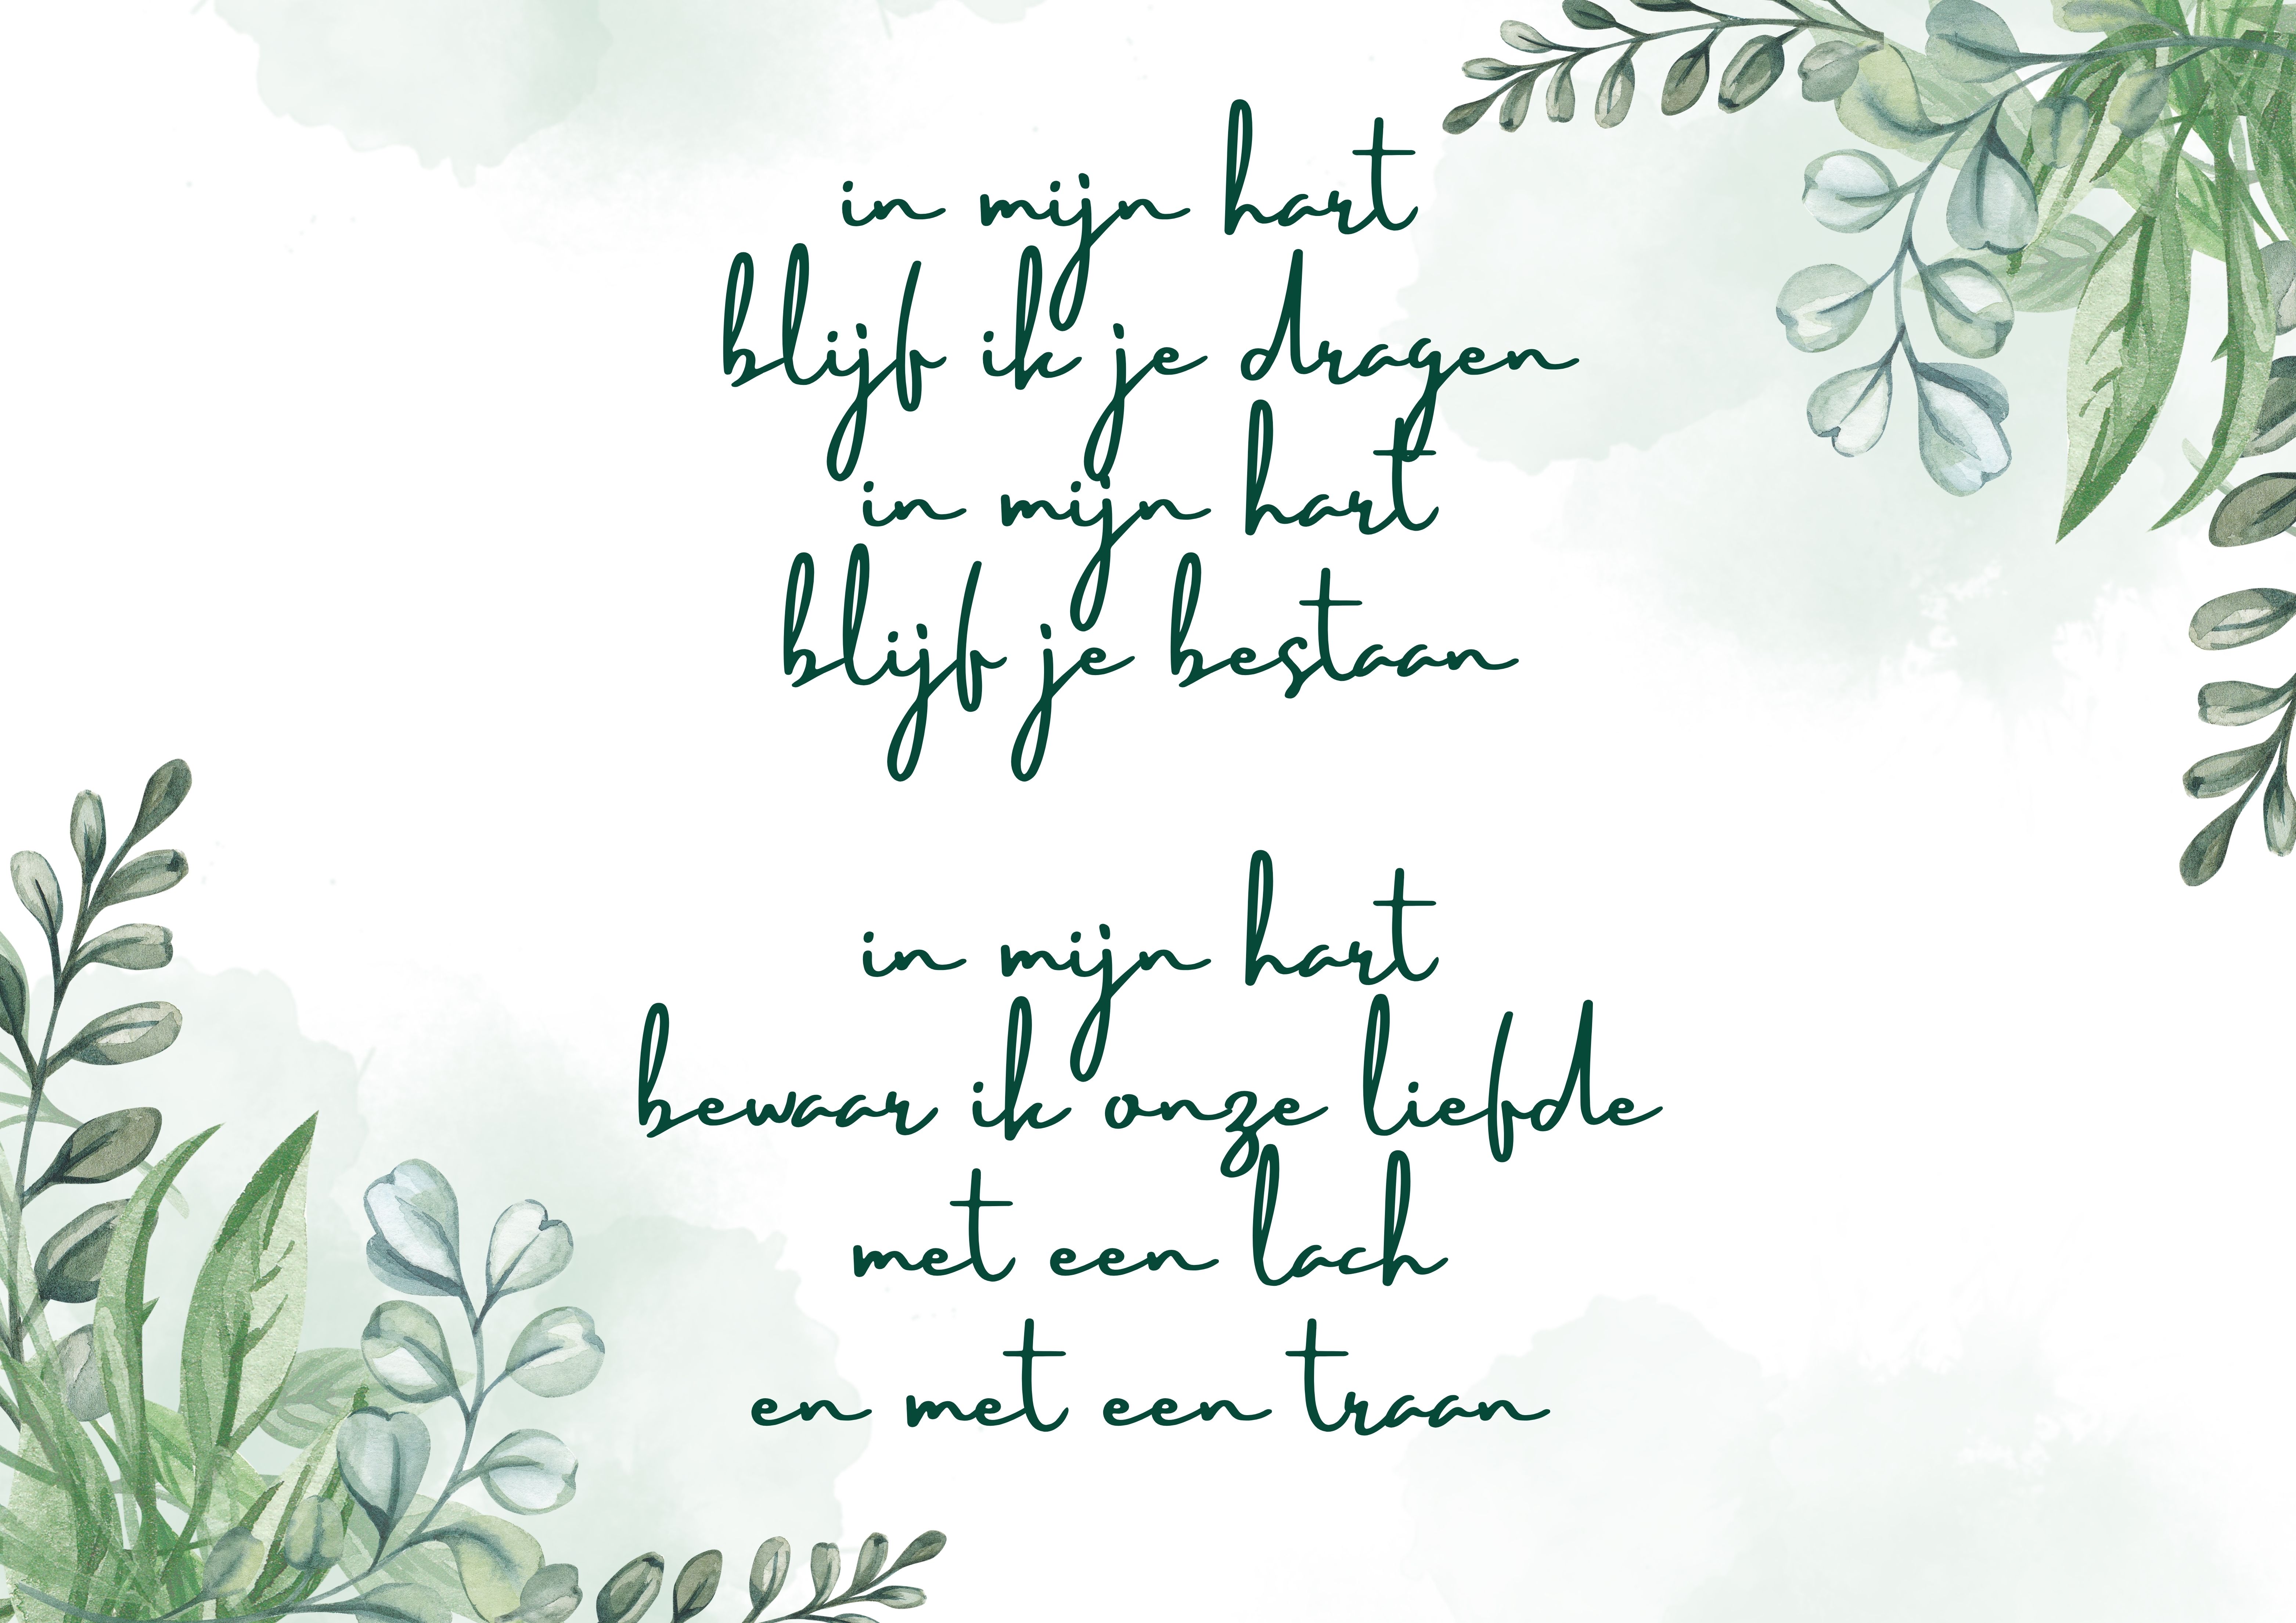 in mijn hart
blijf ik je dragen
in mijn hart
blijf je bestaan
in mijn hart
bewaar ik onze liefde
met een lach
en met een traan